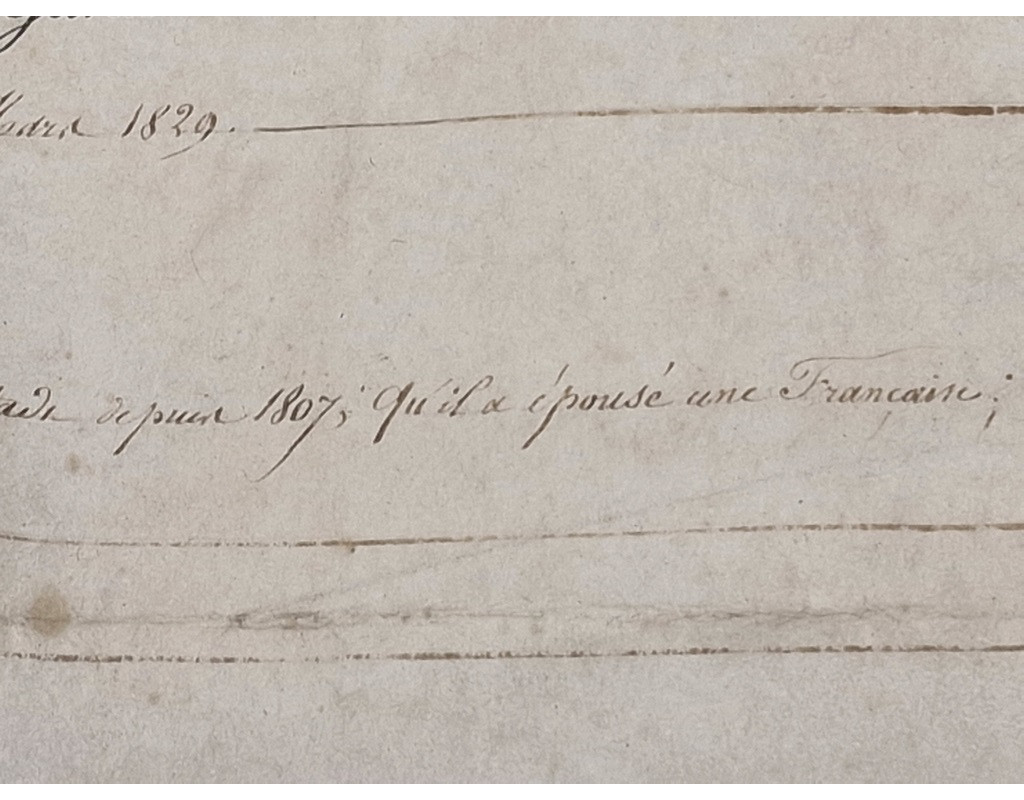 Mars 1829.
depuis 1807; Qu'il a épousé une Française;